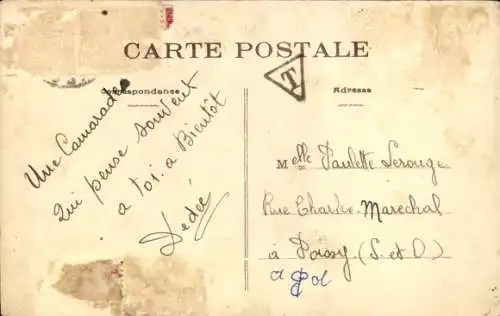 CARTE POSTALE
T
Correspondance
Adresse
Une Camarade
qui pense souvent
a toi. a Bientôt
Dédée
Melle Paulette Lerouge
Rue Charles Marechal
à Poissy (S. et O)